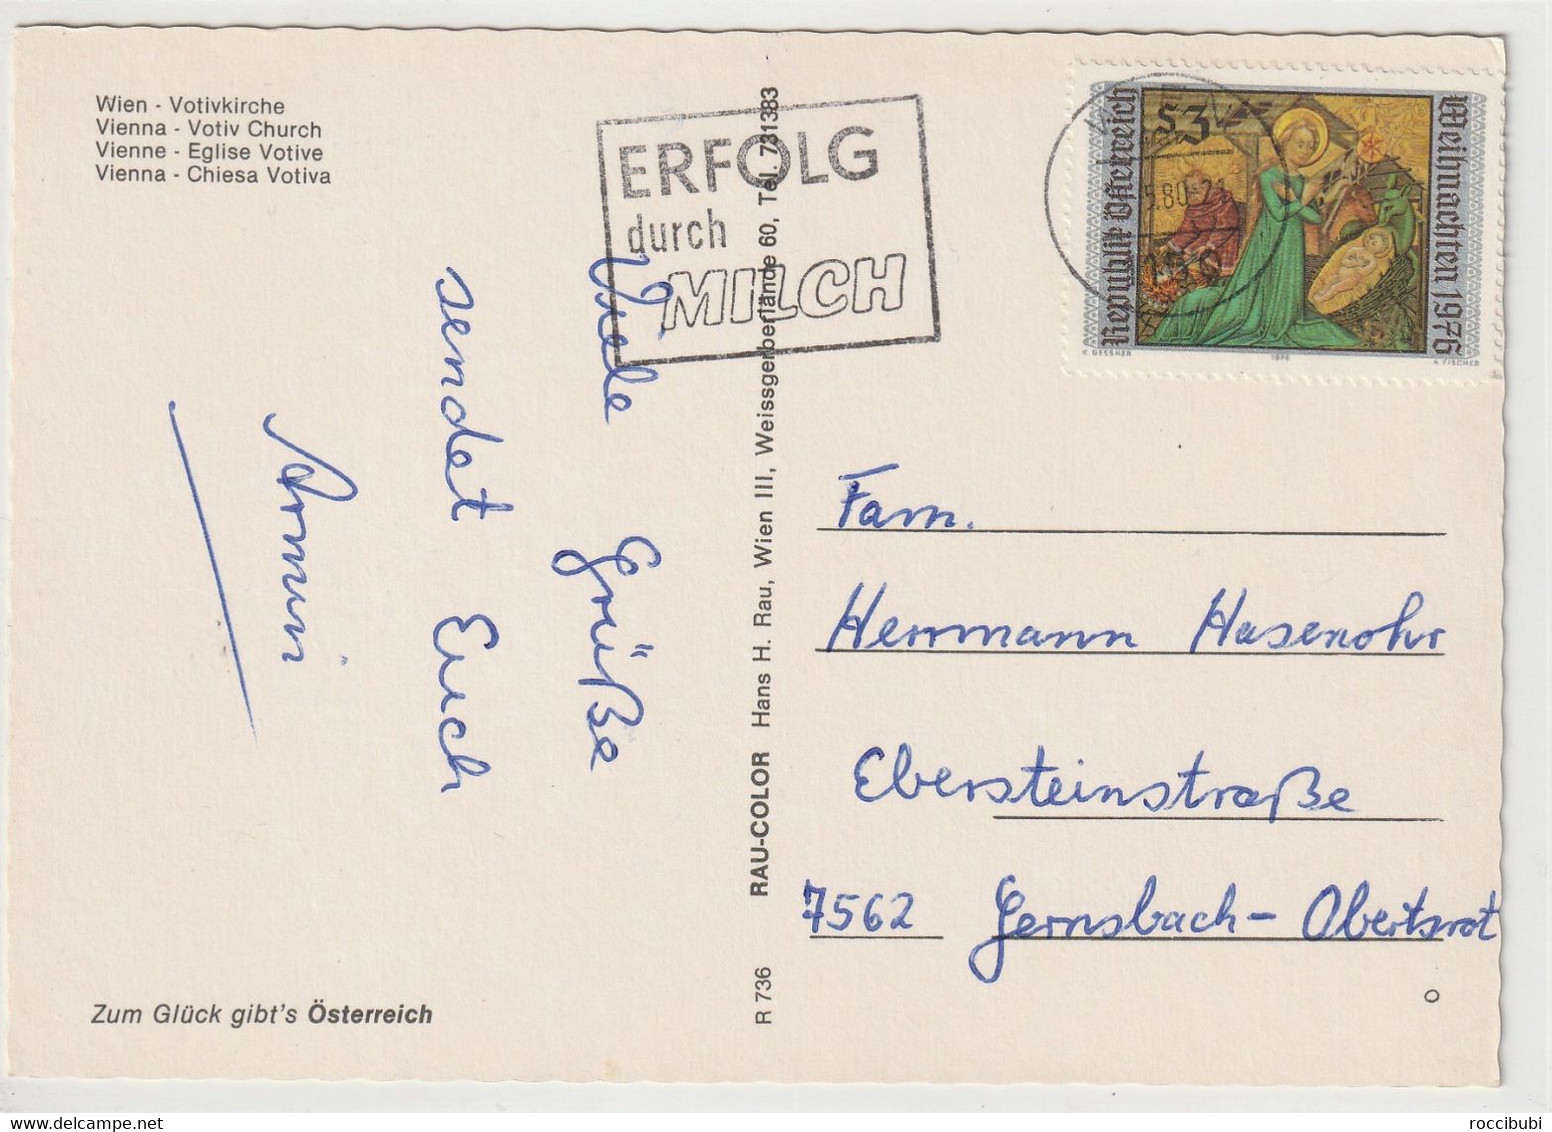 Wien - Votivkirche
Vienna - Votiv Church
Vienne - Eglise Votive
Vienna - Chiesa Votiva
ERFOLG
durch
MILCH
S3
Republik Österreich
Weihnachten 1976
K. GESSNER
1976
A. FISCHER
5.80-21
Viele Grüße
sendet Euch
Armin
R 736 RAU-COLOR Hans H. Rau, Wien III, Weissgerberlände 60, Tel. 731383
Fam.
Herrmann Hasenohr
Ebersteinstraße
7562 Gernsbach-Obertsrot
Zum Glück gibt's Österreich
roccibubi